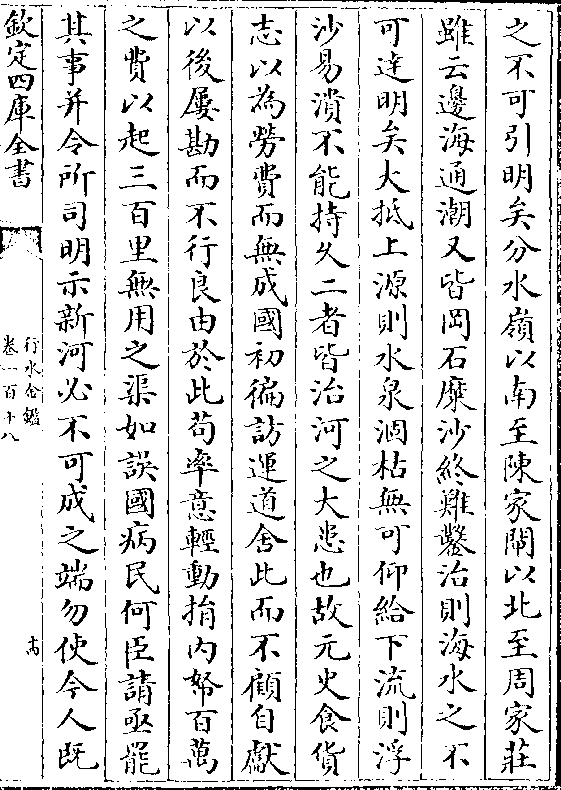 之不可引明矣分水嶺以南至陳家閘以北至周家莊
雖云邊海通潮又皆岡石糜沙終難鑿治則海水之不
可達明矣大抵上源則水泉涸枯無可仰給下流則浮
沙易潰不能持久二者皆治河之大患也故元史食貨
志以為勞費而無成國初徧訪運道舍此而不顧自獻
以後屢勘而不行良由於此苟率意輕動捐内帑百萬
之費以起三百里無用之渠如誤國病民何臣請亟罷
其事并令所司明示新河必不可成之端勿使今人既
欽定四庫全書
行水金鑑
卷一百十八